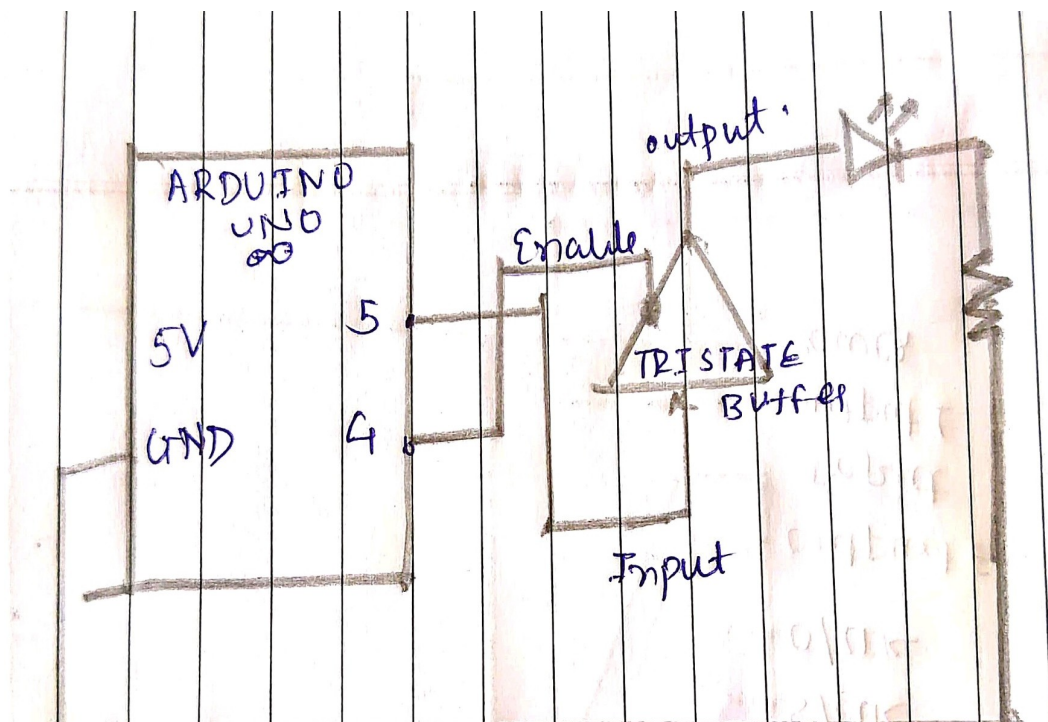 ARDUINO
UNO
5V
GND
5
4
Enable
output.
TRISTATE
Buffer
Input